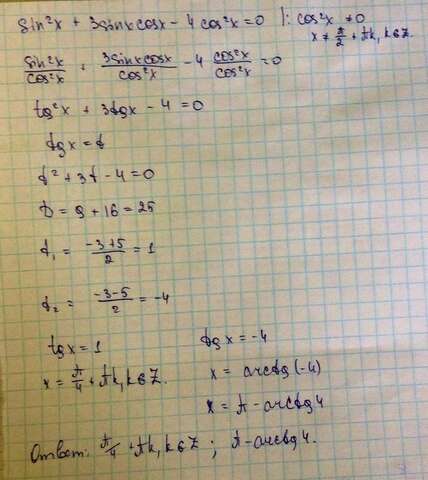 sin²x + 3sinxcosx - 4cos²x = 0 |: cos²x ≠ 0
x ≠ π/2 + πk, k∈Z.
sin²x/cos²x + 3sinxcosx/cos²x - 4 cos²x/cos²x = 0
tg²x + 3tgx - 4 = 0
tgx = t
t² + 3t - 4 = 0
D = 9 + 16 = 25
t₁ = (-3+5)/2 = 1
t₂ = (-3-5)/2 = -4
tgx = 1 tgx = -4
x = π/4 + πk, k∈Z. x = arctg(-4)
x = π - arctg4
Ответ: π/4 + πk, k∈Z ; π - arctg4.